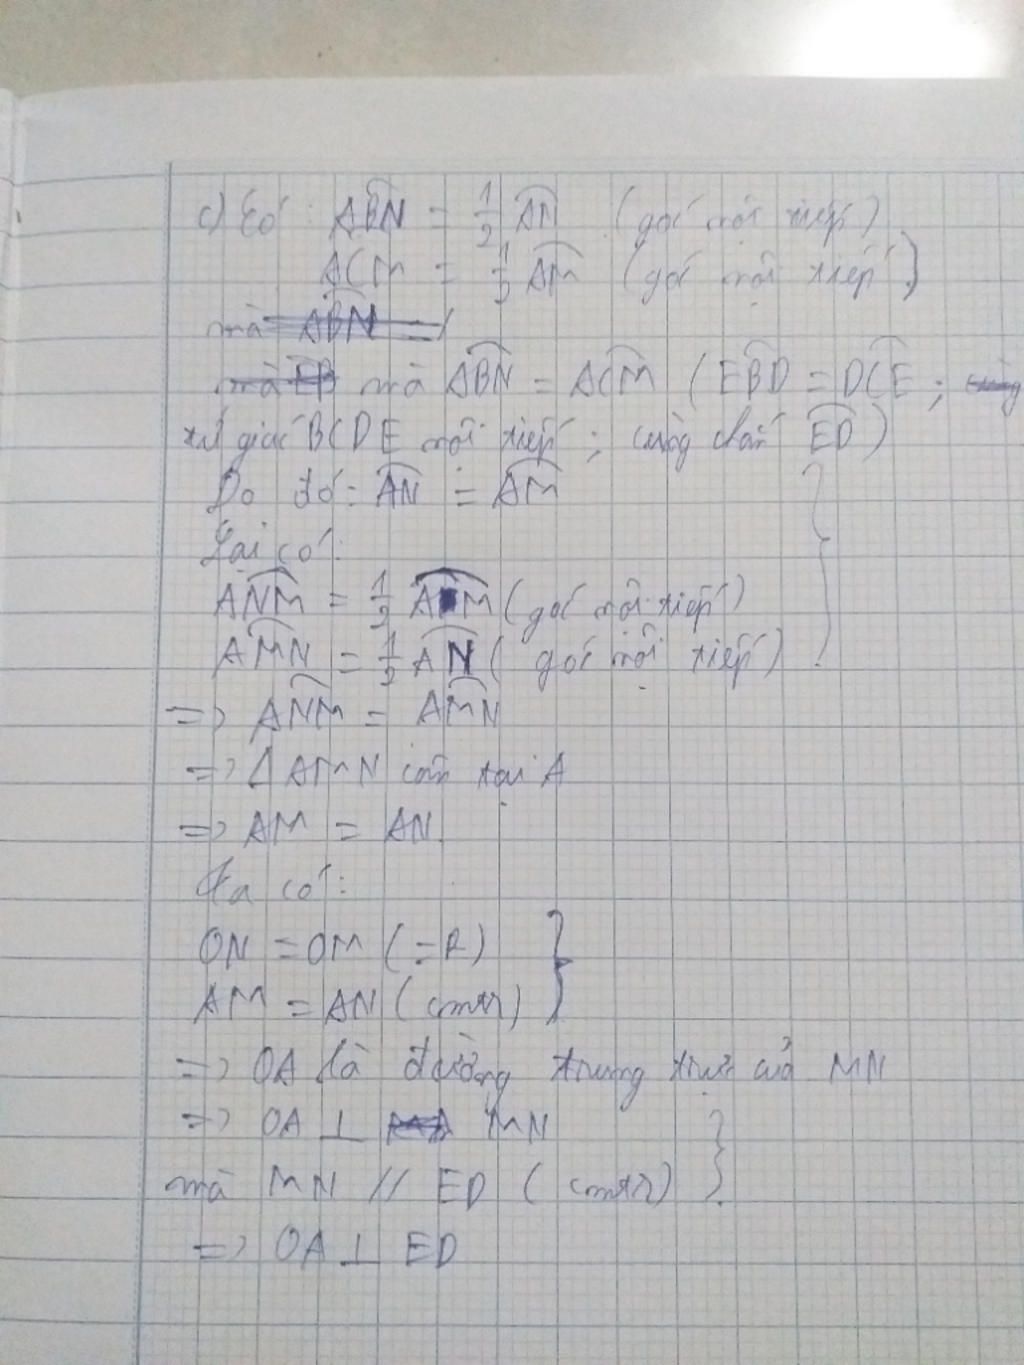 c) Có: ABN = 1/2 AN (góc nội tiếp)
ACM = 1/2 AM (góc nội tiếp)
mà ABN =
mà EB mà ABN = ACM (EBD = DCE; cùng
tứ giác BCDE nội tiếp; cùng chắn ED)
Do đó: AN = AM
Lại có:
ANM = 1/2 AM (góc nội tiếp)
AMN = 1/2 AN (góc nội tiếp)
=> ANM = AMN
=> Δ AMN cân tại A
=> AM = AN.
Ta có:
ON = OM (=R)
AM = AN (cmtr)
=> OA là đường trung trực của MN
=> OA ⊥ MN
mà MN // ED (cmtr)
=> OA ⊥ ED